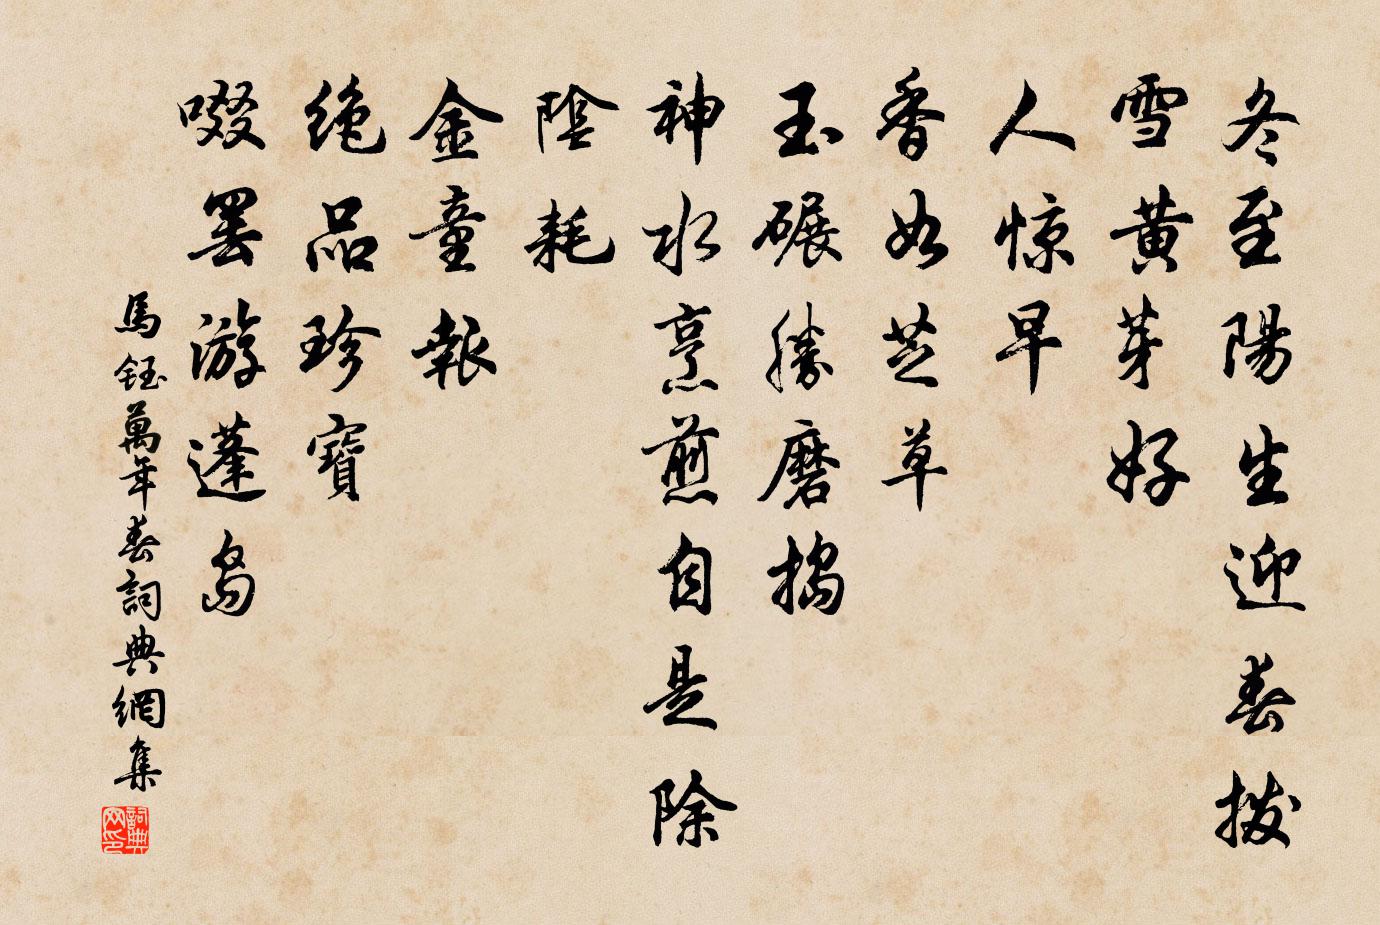 冬至陽生迎春撥
雪黄芽好
人惊早
香如芝草
玉碾勝磨搗
神水烹煎自是除
陰耗
金童報
绝品珍寶
啜罢游蓬島
馬鈺萬年春詞典網集
詞典网印